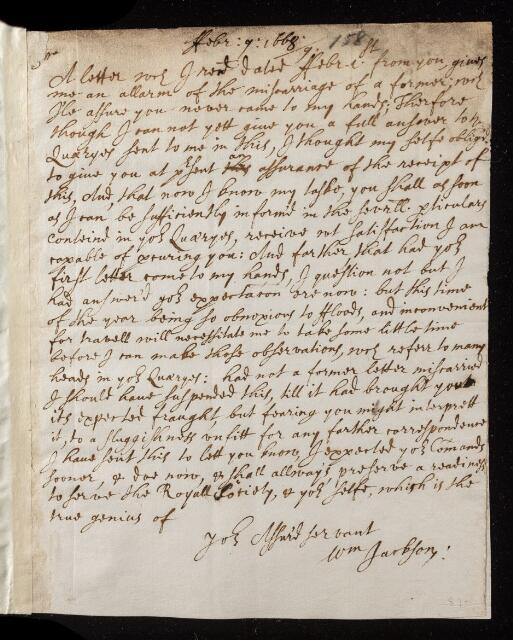 Febr: 9: 1668
Sr
A letter wch I recd dated Febr. 1st from you gives
me an allarm of the miscarriage of a former; wch
Ile assure you never came to my hands; Therfore
though I can not yett give you a full answer to ye
Quæryes sent to me in this, I thought my selfe oblig'd
to give you at prsent an assurance of the receipt of
this, And that now I know my taske, you shall as soon
as I can be sufficiently inform'd in the severll. pticulars
conteind in yor Quæryes, receive wt satisfaction I am
capable of procuring you: And farther that had yor
first letter come to my hands, I question not but I
had answer'd yor expectacon ere now: but this time
of the year being so obnoxious to floods, and inconvenient
for travell will necessitate me to take some little time
before I can make those observations, wch referr to many
heads in yor Quæryes: had not a former letter miscarried
I should have suspended this, till it had brought you
its expected fraught, but fearing you might interprett
it, to a sluggishness unfitt for any farther correspondence
I have sent this to lett you know, I expected yor Comands
sooner, & doe now, & shall allways preserve a readiness
to serve the Royall Society, & yor selfe, which is the
true genius of
yor Assur'd servant
Wm Jackson: